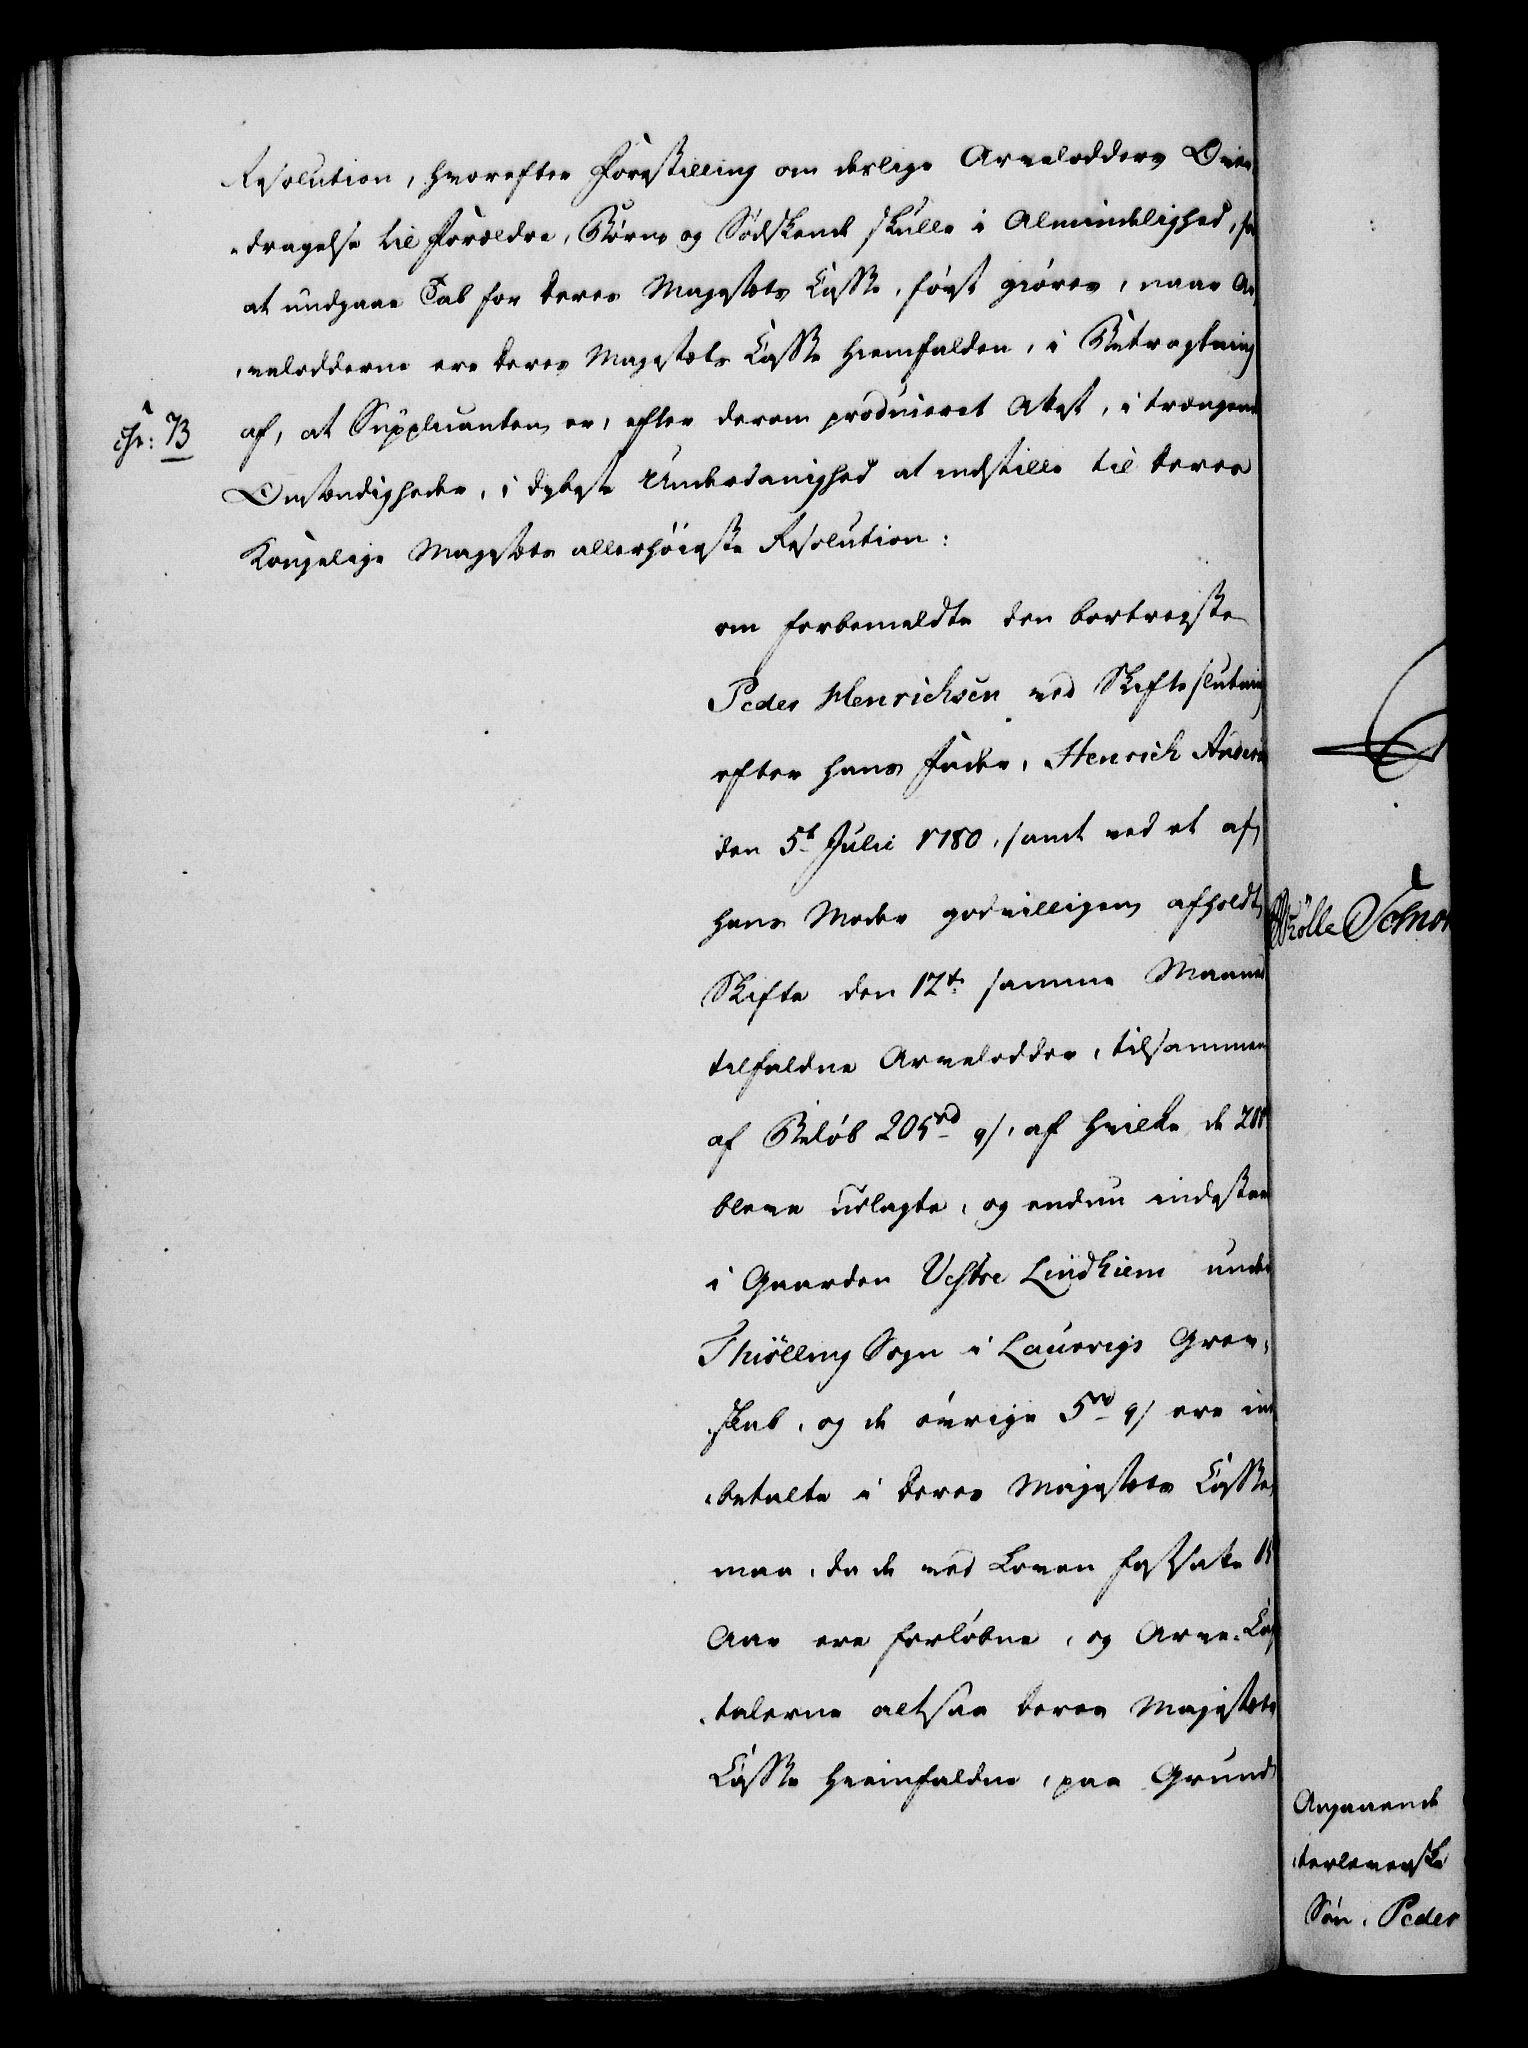 Resolution, hvorefter Forestilling om deslige Arvelodders Over
-dragelse til Forældre, Børn og Sødskende skulle i Almindelighed, for
at undgaae Tab for Deres Majestæts Casse, først giøres, naar Ar
-velodderne ere Deres Majestæts Casse hiemfalden, i Betragtning
af, at Supplicanten er, efter derom produceret Attest, i trængende
Chr: 73
Omstændigheder, i dybeste Underdanighed at indstille til Deres
Kongelige Majestæts allerhøieste Resolution:
om forbemeldte den bortreiste
Peder Henrichsen ved Skifteslutning
efter hans Fader, Henrich Anders
den 5t Julii 1780, samt ved et af
hans Moder godvilligen afholdt
Skifte den 12t samme Maaned
tilfaldne Arvelodder, tilsammen
af Beløb 205rd q/, af hvilke de 200
bleve udlagte, og endnu indestaae
i Gaarden Vestre Lindhiem under
Thiølling Sogn i Laurvigs Grev-
skab, og de øvrige 5rd q/ ere ind
-betalte i Deres Majestæts Casse,
maa, da de ved Loven fastsatte 15
Aar ere forløbne, og Arve-Cap
-talerne altsaa Deres Majestæts
Casse hiemfaldne, paa Grund
Angaaende
-terleverske
Søn, Peder